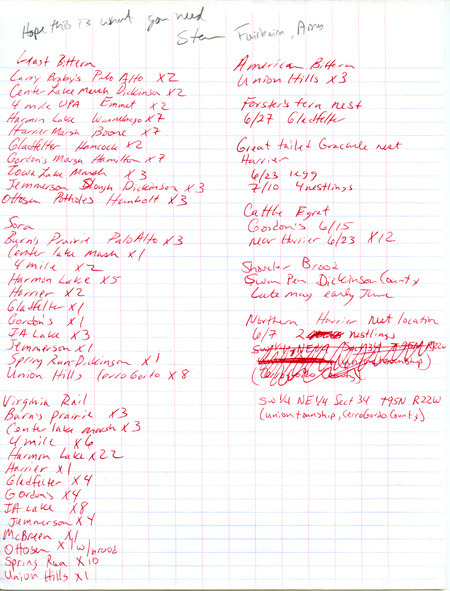 Hope this is what you need
Stan Fairbairn, Ames
Least Bittern
Larry Braby's Palo Alto x2
Center Lake Marsh Dickinson x2
4 mile WPA Emmet x2
Harmon Lake Winnebago x7
Harrier Marsh Boone x7
Gladfelter Hancock x2
Gordon's Marsh Hamilton x7
Iowa Lake Marsh x3
Jemmerson Slough Dickinson x3
Ottosen Potholes Humbolt x3
Sora
Burn's Prairie Palo Alto x3
Center lake marsh x1
4 mile x2
Harmon Lake x5
Harrier x2
Gladfelter x1
Gordon's x1
IA Lake x3
Jemmerson x1
Spring Run-Dickinson x1
Union Hills Cerro Gordo x8
Virginia Rail
Burn's prairie x3
Center lake marsh x3
4 mile x6
Harmon Lake x22
Harrier x1
Gladfelter x4
Gordon's x4
IA Lake x8
Jemmerson x4
McBreen x1
Ottosen x1 w/brood
Spring Run x10
Union Hills x1
American Bittern
Union Hills x3
Forster's tern nest
6/27 Gladfelter
Great tailed Grackle nest
Harrier
6/23 1egg
7/10 4nestlings
Cattle Egret
Gordon's 6/15
Near Harrier 6/23 x12
Shoveler Brood
Swan Pen Dickinson County
Late may early June
Northern Harrier Nest location
6/7 2 nestlings
SW1/4 NE1/4 Sect 34 T95N R22W
(Union township, Cerro Gordo County)